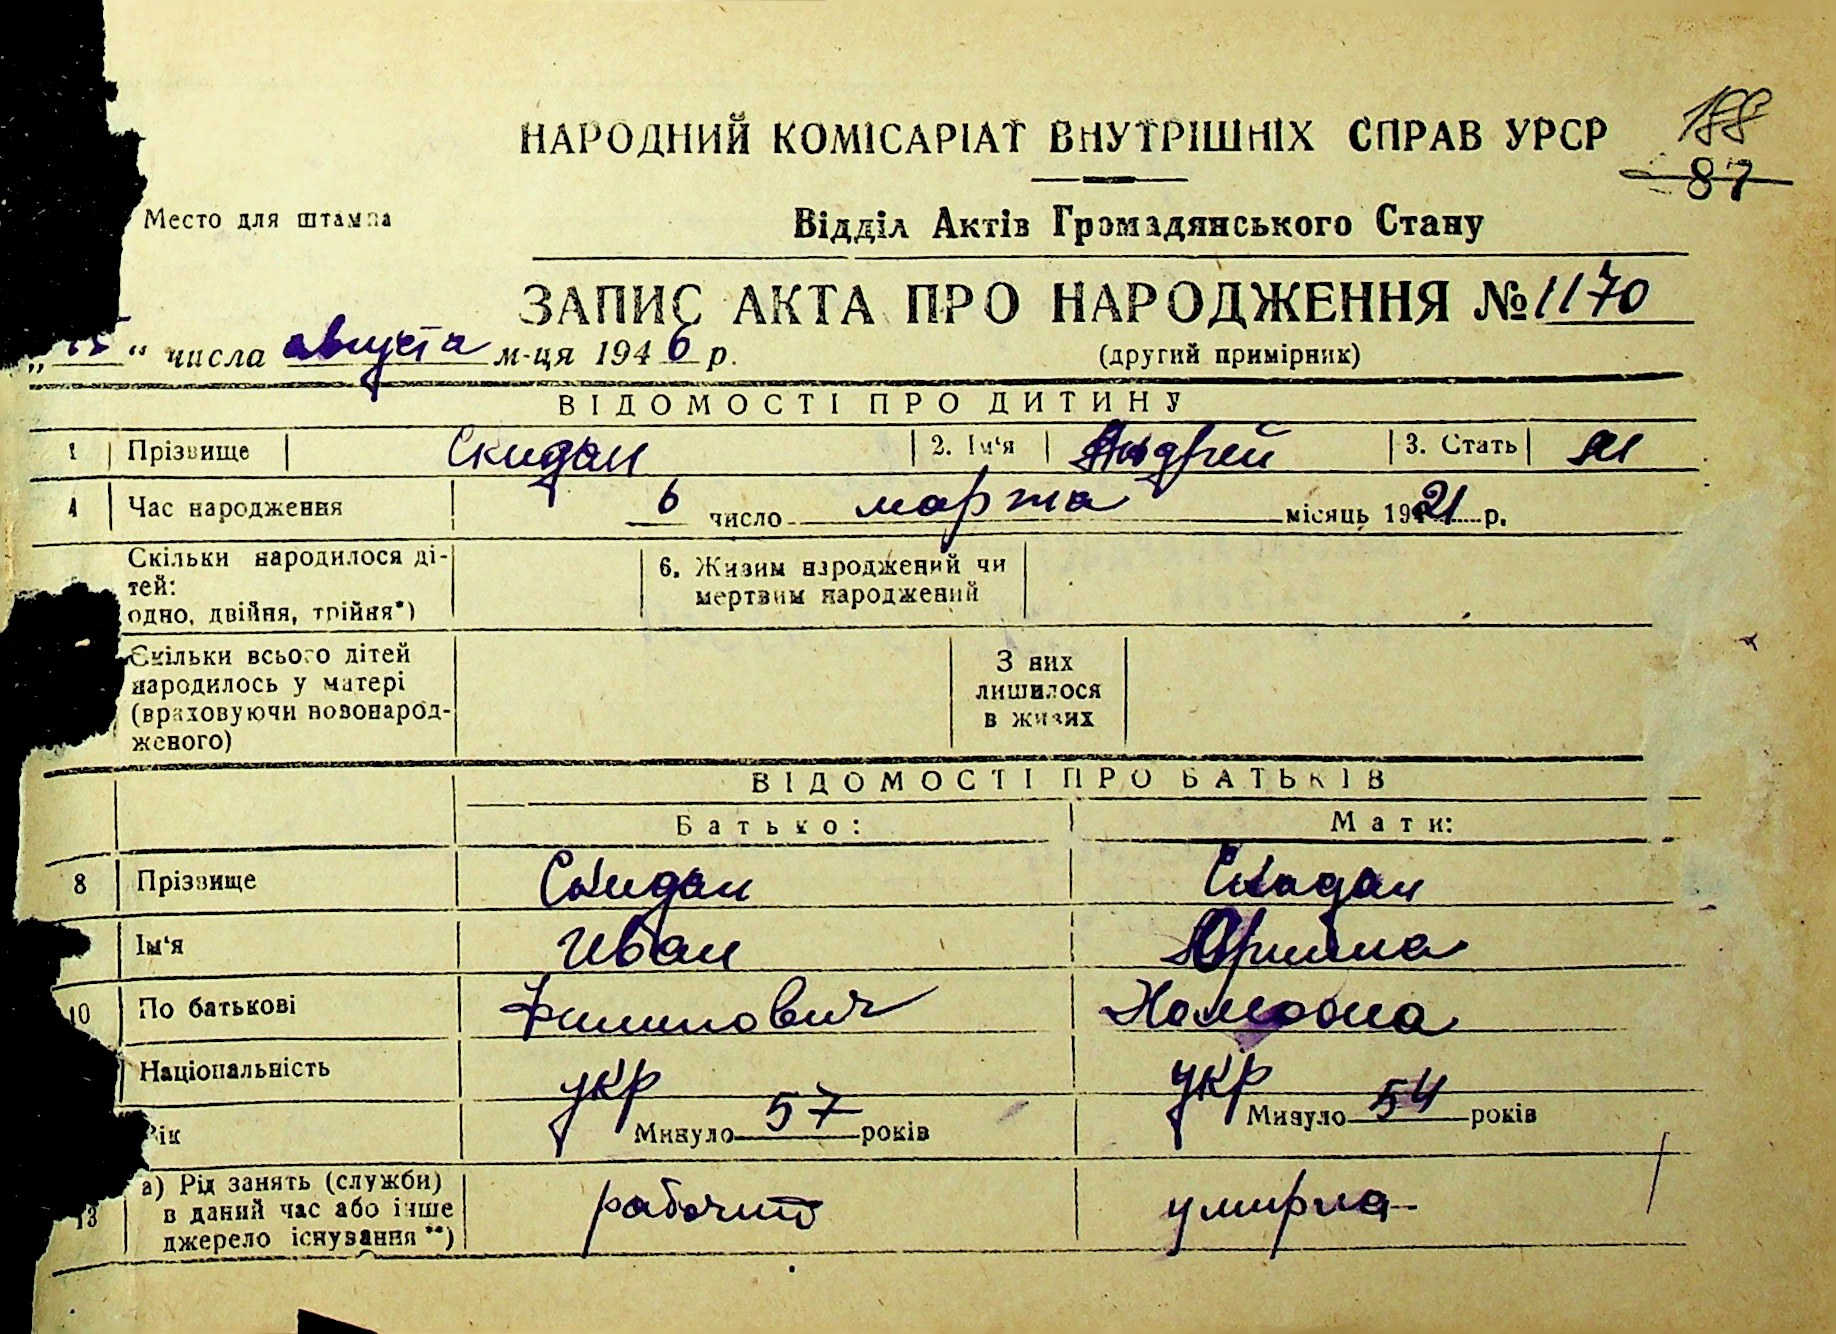 188
87
НАРОДНИЙ КОМІСАРІАТ ВНУТРІШНІХ СПРАВ УРСР
Место для штампа
Відділ Актів Громадянського Стану
ЗАПИС АКТА ПРО НАРОДЖЕННЯ № 1170
(другий примірник)
„ “ числа августа м-ця 1946 р.
ВІДОМОСТІ ПРО ДИТИНУ
1 Прізвище Скидан 2. Ім'я Андрей 3. Стать м
4 Час народження 6 число марта місяць 1921 р.
Скільки народилося ді-
тей:
одно, двійня, трійня*)
6. Живим народжений чи
мертвим народжений
Скільки всього дітей
народилось у матері
(враховуючи новонарод-
женого)
З них
лишилося
в живих
ВІДОМОСТІ ПРО БАТЬКІВ
Батько: Мати:
8 Прізвище Скидан Скидан
Ім'я Иван Орина
10 По батькові Филипович
Національність укр укр
Вік Минуло 57 років Минуло 54 років
13 а) Рід занять (служби)
в даний час або інше
джерело існування **)
рабочий умирла